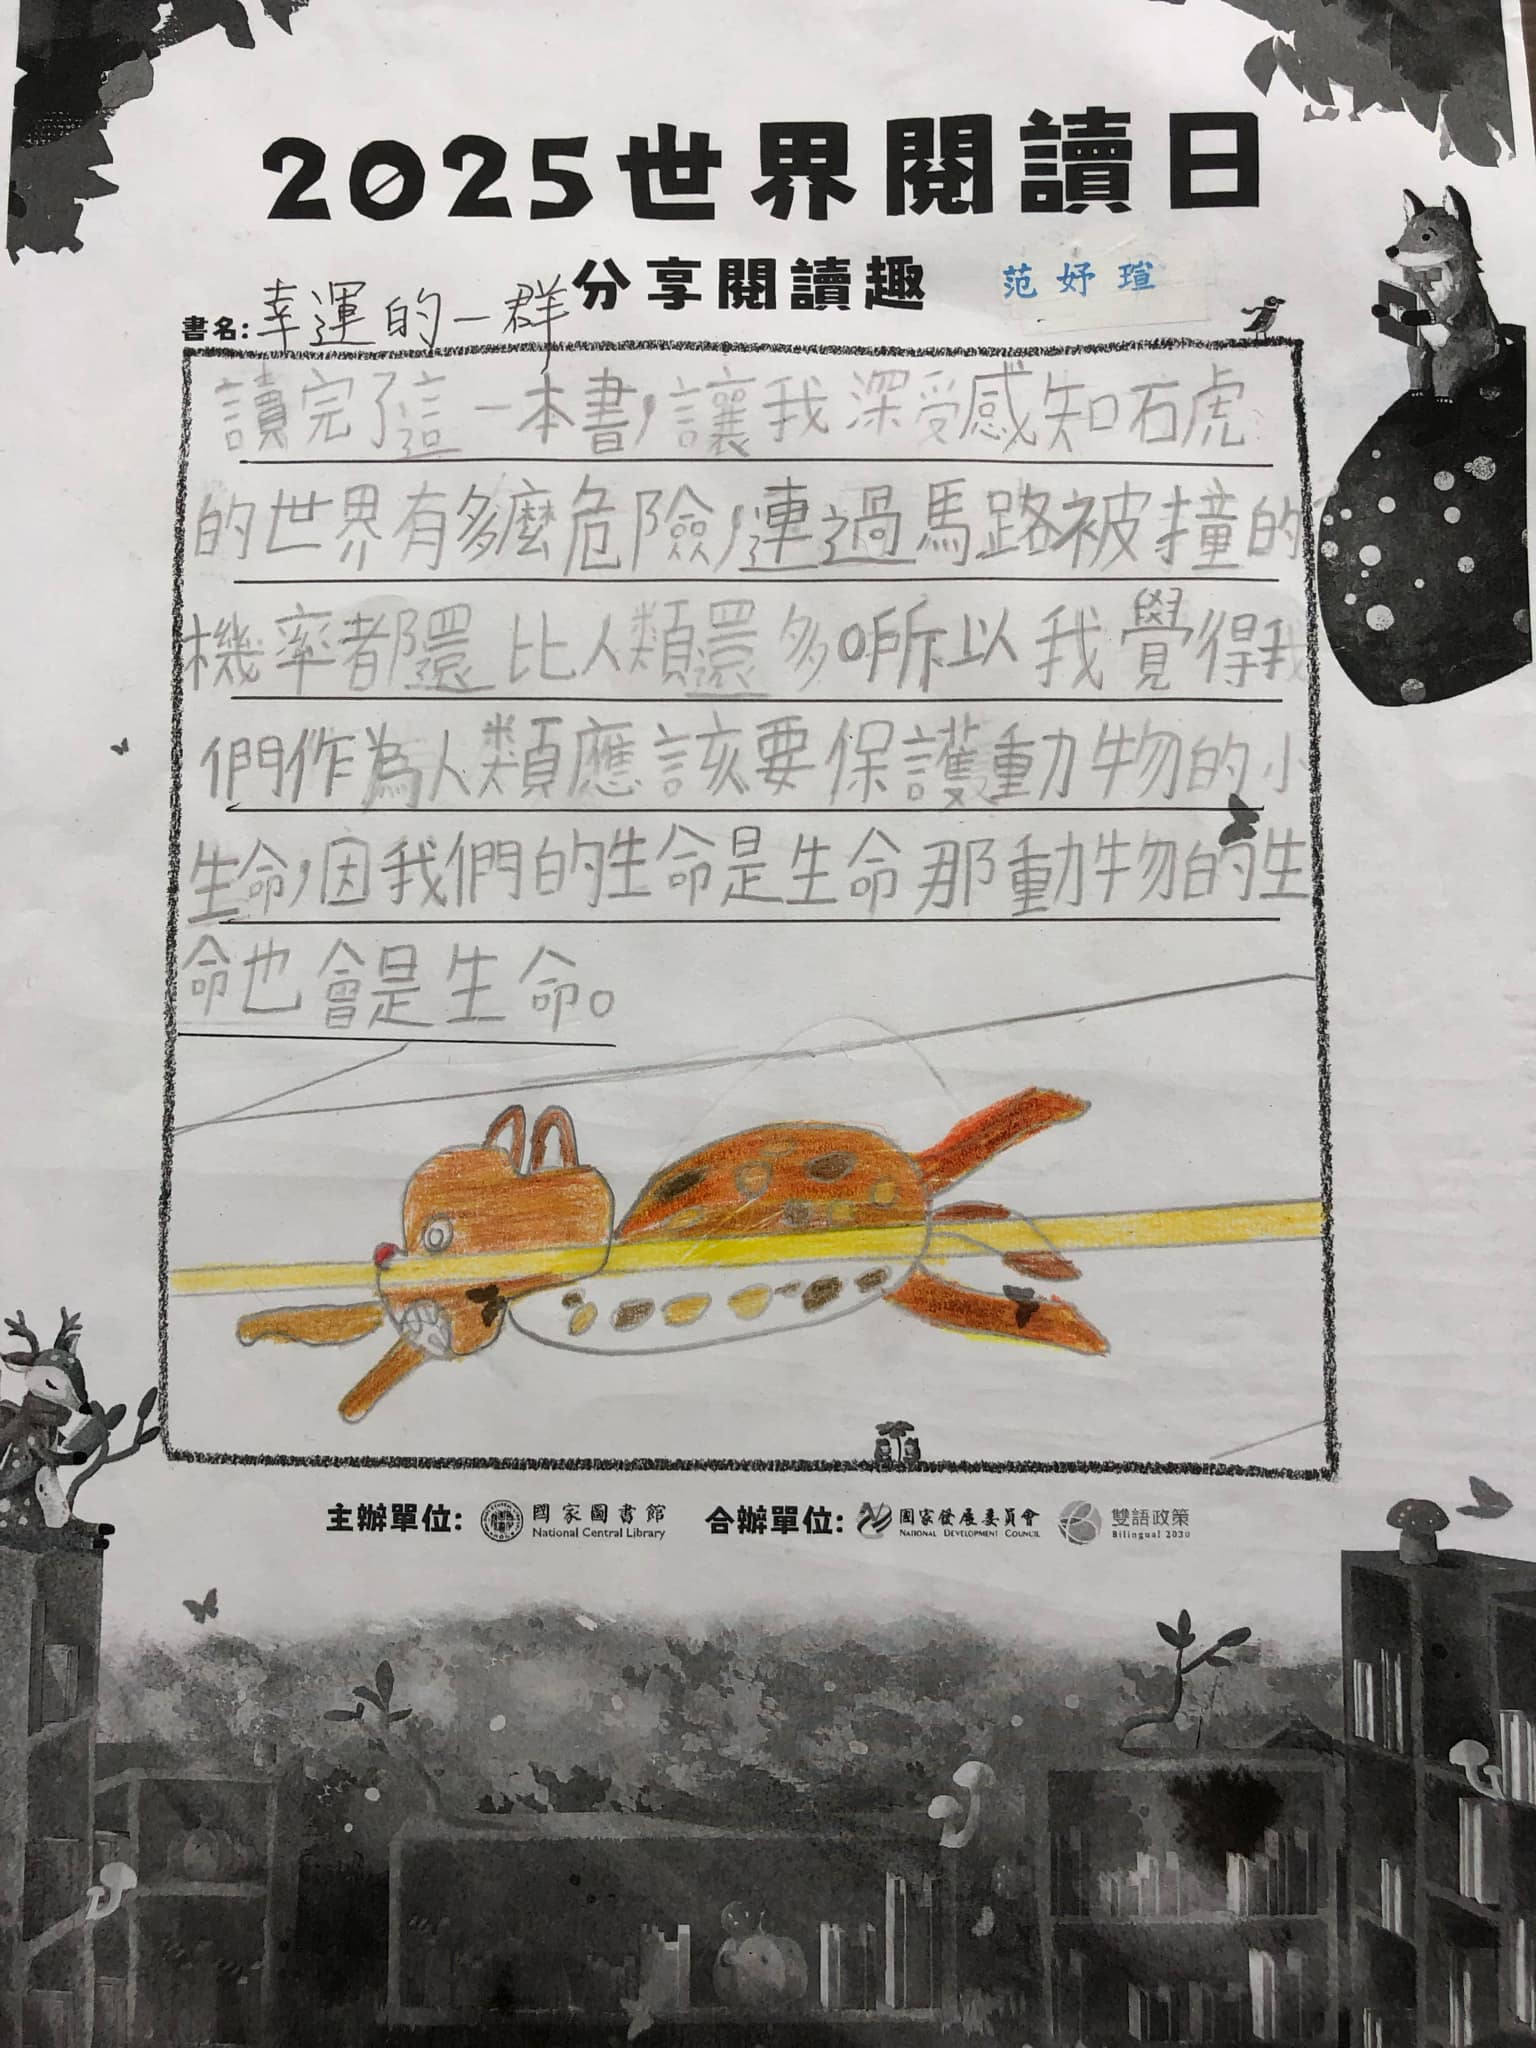 2025世界閱讀日
分享閱讀趣
范妤瑄
書名:幸運的一群
讀完了這一本書,讓我深受感知石虎
的世界有多麼危險,連過馬路被撞的
機率都還比人類還多。所以我覺得我
們作為人類應該要保護動物的小
生命,因我們的生命是生命那動物的生
命也會是生命。
主辦單位: 國家圖書館 National Central Library 合辦單位: 國家發展委員會 National Development Council 雙語政策 Bilingual 2030